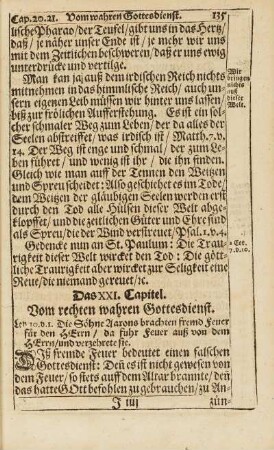 Cap. 20. 21. Vom wahren Gottesdienst. 135
lische Pharao/der Teufel/gibt uns in das Hertz/
daß/ je näher unser Ende ist / je mehr wir uns
mit dem Zeitlichen beschweren/daß er uns ewig
unterdrucke und vertilge.
Man kan ja/auß dem irdischen Reich nichts
mitnehmen in das himmlische Reich/ auch un-
sern eigenen Leib müssen wir hinter uns lassen/
biß zur frölichen Aufferstehung. Es ist ein sol-
cher schmaler Weg zum Leben/ der da alles der
Seelen abstreiffet/was irdisch ist / Matth. 7. v.
14. Der Weg ist enge und schmal / der zum Le-
ben führet / und wenig ist ihr / die ihn finden.
Gleich wie man auff der Tennen den Weitzen
und Spreu scheidet: Also geschiehet es im Tode/
dem Weitzen der gläubigen Seelen werden erst
durch den Tod alle Hülsen dieser Welt abge-
klopffet/ und die zeitlichen Gütter und Ehre sind
als Spreu/die der Wind verstreuet/Psal. 1. v. 4.
Gedencke nun an St. Paulum: Die Trau-
rigkeit dieser Welt wircket den Tod : Die gött-
liche Traurigkeit aber wircket zur Seligkeit eine
Reue/die niemand gereuet/ꝛc.
Wir
bringen
nichts
auß
dieser
Welt.
2 Cor.
7. v. 10.
Das XXI. Capitel.
Vom rechten wahren Gottesdienst.
Lev. 10. v. 1. Die Söhne Aarons brachten fremd Feuer
für den HErrn/ da fuhr Feuer auß von dem
HErrn/und verzehrete sie.
Diß fremde Feuer bedeutet einen falschen
Gottesdienst: Den es ist nicht gewesen von
dem Feuer/so stets auff dem Altar brannte/ deñ
das hatte GOtt befohlen zu gebrauchen/ zu An-
J iiij zün-